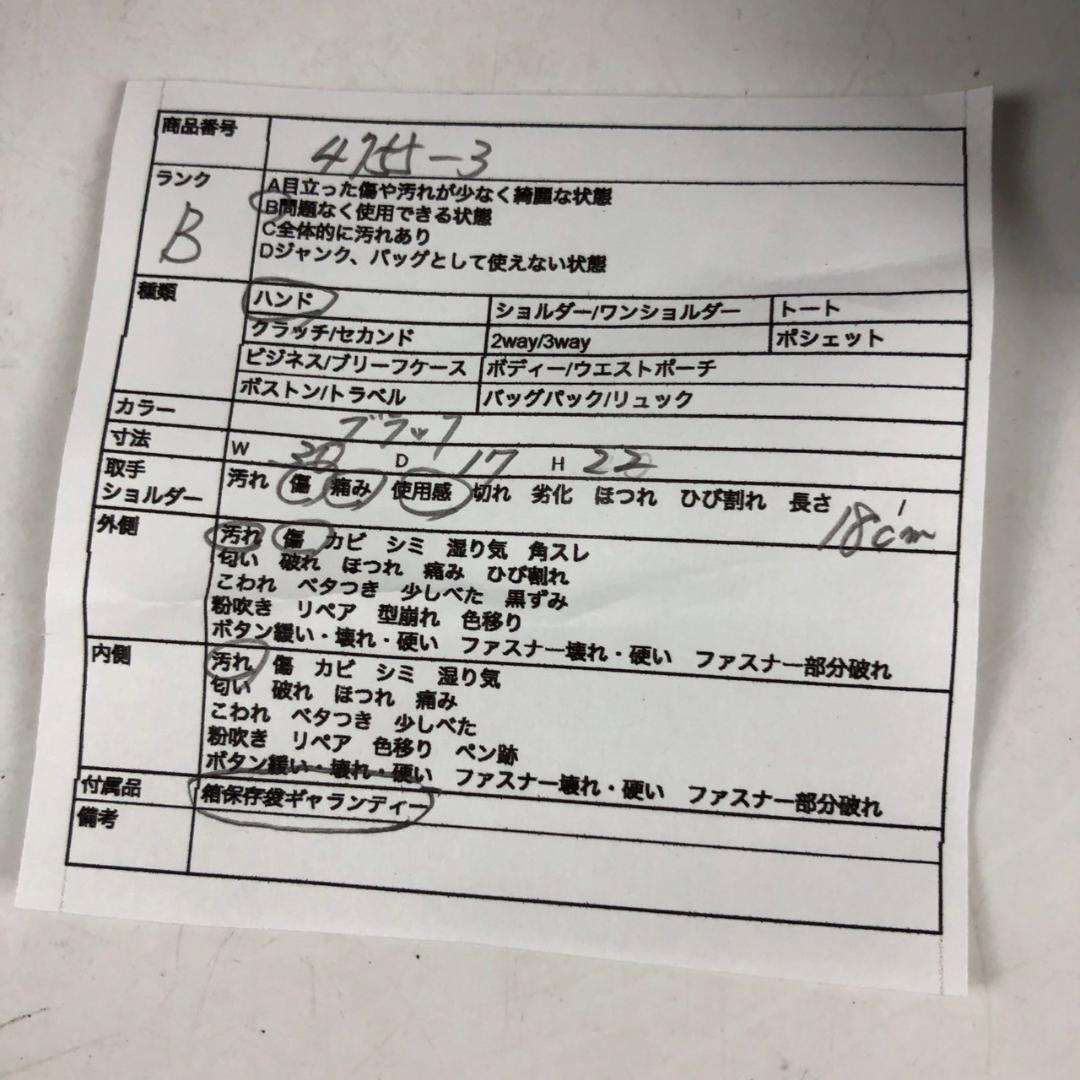 商品番号 4755-3
ランク B
A目立った傷や汚れが少なく綺麗な状態
B問題なく使用できる状態
C全体的に汚れあり
Dジャンク、バッグとして使えない状態
種類 ハンド ショルダー/ワンショルダー トート
クラッチ/セカンド 2way/3way ポシェット
ビジネス/ブリーフケース ボディー/ウエストポーチ
ボストン/トラベル バッグパック/リュック
カラー ブラック
寸法 W D 17 H 22
取手
ショルダー 汚れ 傷 痛み 使用感 切れ 劣化 ほつれ ひび割れ 長さ 18cm
外側 汚れ 傷 カビ シミ 湿り気 角スレ
匂い 破れ ほつれ 痛み ひび割れ
こわれ ベタつき 少しべた 黒ずみ
粉吹き リペア 型崩れ 色移り
ボタン緩い・壊れ・硬い ファスナー壊れ・硬い ファスナー部分破れ
内側 汚れ 傷 カビ シミ 湿り気
匂い 破れ ほつれ 痛み
こわれ ベタつき 少しべた
粉吹き リペア 色移り ペン跡
ボタン緩い・壊れ・硬い ファスナー壊れ・硬い ファスナー部分破れ
付属品 箱保存袋ギャランティー
備考